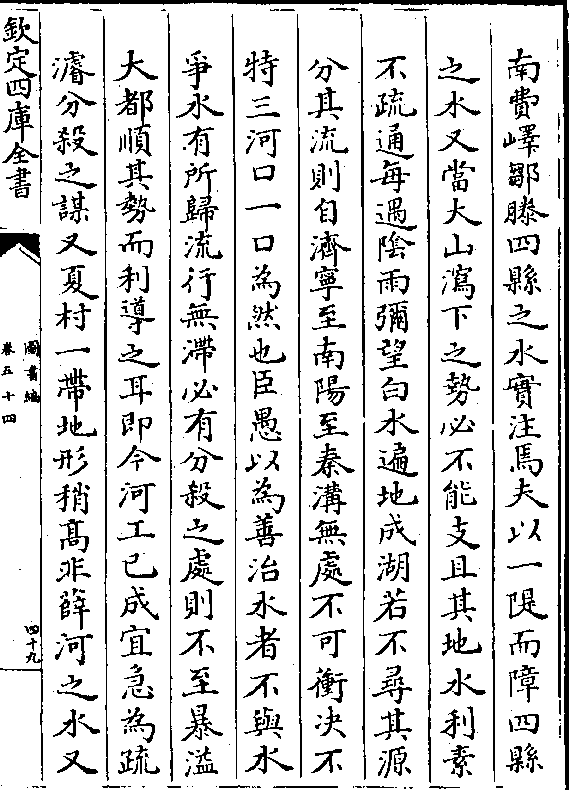 南費嶧鄒滕四縣之水實注焉夫以一隄而障四縣
之水又當大山瀉下之勢必不能支且其地水利素
不疏通每遇陰雨彌望白水遍地成湖若不尋其源
分其流則自濟寧至南陽至秦溝無處不可衝决不
特三河口一口為然也臣愚以為善治水者不與水
爭水有所歸流行無滯必有分殺之處則不至暴溢
大都順其勢而利導之耳即今河工已成宜急為疏
濬分殺之謀又夏村一帶地形稍髙非薛河之水又
欽定四庫全書
圖書編
卷五十四
四十九